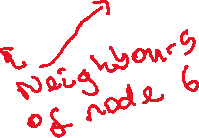 Neighbours
of node 6